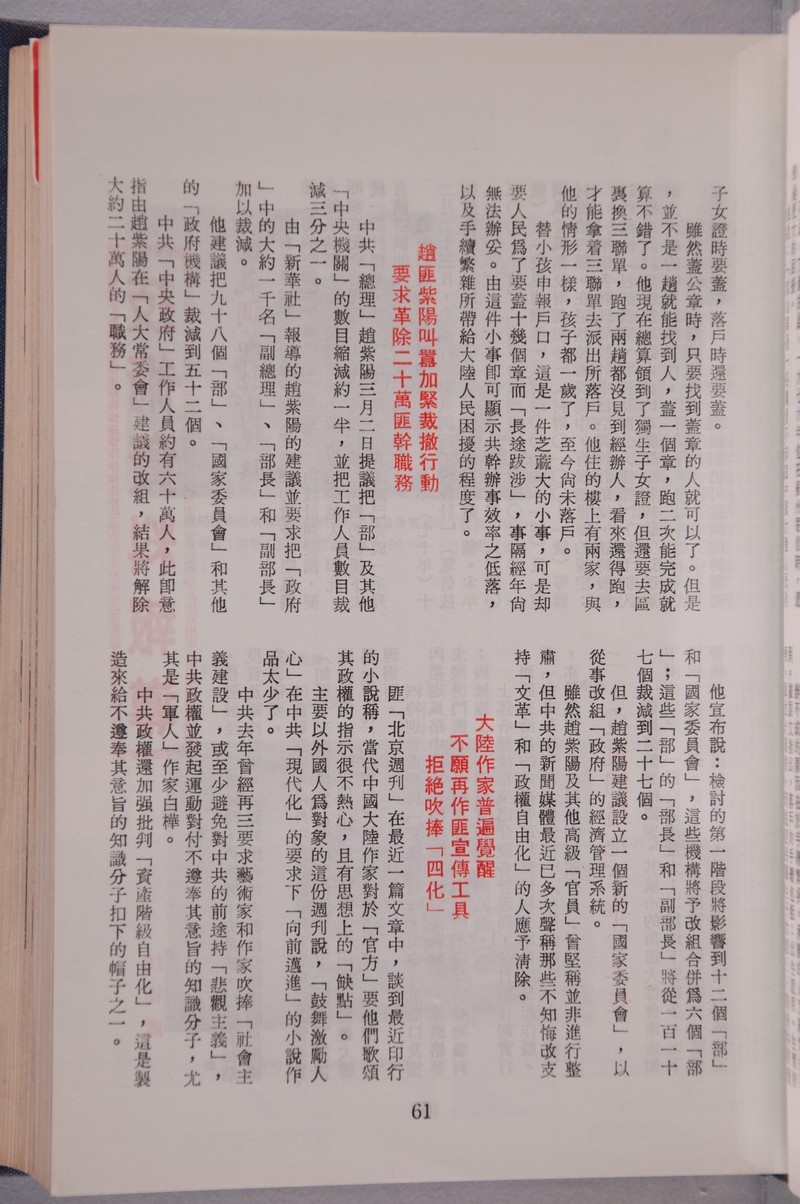 子女證時要蓋，落戶時還要蓋。
雖然蓋公章時，只要找到蓋章的人就可以了。但是
，並不是一趟就能找到人，蓋一個章，跑二次能完成就
算不錯了。他現在總算領到了獨生子女證，但還要去區
裏換三聯單，跑了兩趟都沒見到經辦人，看來還得跑，
才能拿着三聯單去派出所落戶。他住的樓上有兩家，與
他的情形一樣，孩子都一歲了，至今尙未落戶。
替小孩申報戶口，這是一件芝蔴大的小事，可是却
要人民爲了要蓋十幾個章而「長途跋涉」，事隔經年尙
無法辦妥。由這件小事卽可顯示共幹辦事效率之低落，
以及手續繁雜所帶給大陸人民困擾的程度了。
趙匪紫陽叫囂加緊裁撤行動
要求革除二十萬匪幹職務
中共「總理」趙紫陽三月二日提議把「部」及其他
「中央機關」的數目縮減約一半，並把工作人員數目裁
減三分之一。
由「新華社」報導的趙紫陽的建議並要求把「政府
」中的大約一千名「副總理」、「部長」和「副部長」
加以裁減。
他建議把九十八個「部」、「國家委員會」和其他
的「政府機構」裁減到五十二個。
中共「中央政府」工作人員約有六十萬人，此卽意
指由趙紫陽在「人大常委會」建議的改組，結果將解除
大約二十萬人的「職務」。
他宣布說：檢討的第一階段將影響到十二個「部」
和「國家委員會」，這些機構將予改組合併爲六個「部
」；這些「部」的「部長」和「副部長」將從一百一十
七個裁減到二十七個。
但，趙紫陽建議設立一個新的「國家委員會」，以
從事改組「政府」的經濟管理系統。
雖然趙紫陽及其他高級「官員」曾堅稱並非進行整
肅，但中共的新聞媒體最近已多次聲稱那些不知悔改支
持「文革」和「政權自由化」的人應予清除。
大陸作家普遍覺醒
不願再作匪宣傳工具
拒絕吹捧「四化」
匪「北京週刊」在最近一篇文章中，談到最近印行
的小說稱，當代中國大陸作家對於「官方」要他們歌頌
其政權的指示很不熱心，且有思想上的「缺點」。
主要以外國人爲對象的這份週刊說，「鼓舞激勵人
心」在中共「現代化」的要求下「向前邁進」的小說作
品太少了。
中共去年曾經再三要求藝術家和作家吹捧「社會主
義建設」，或至少避免對中共的前途持「悲觀主義」，
中共政權並發起運動對付不遵奉其意旨的知識分子，尤
其是「軍人」作家白樺。
中共政權還加强批判「資產階級自由化」，這是製
造來給不遵奉其意旨的知識分子扣下的帽子之一。
61